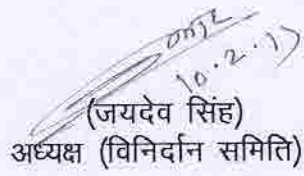 10.2.17
(जयदेव सिंह)
अध्यक्ष (विनिर्दान समिति)